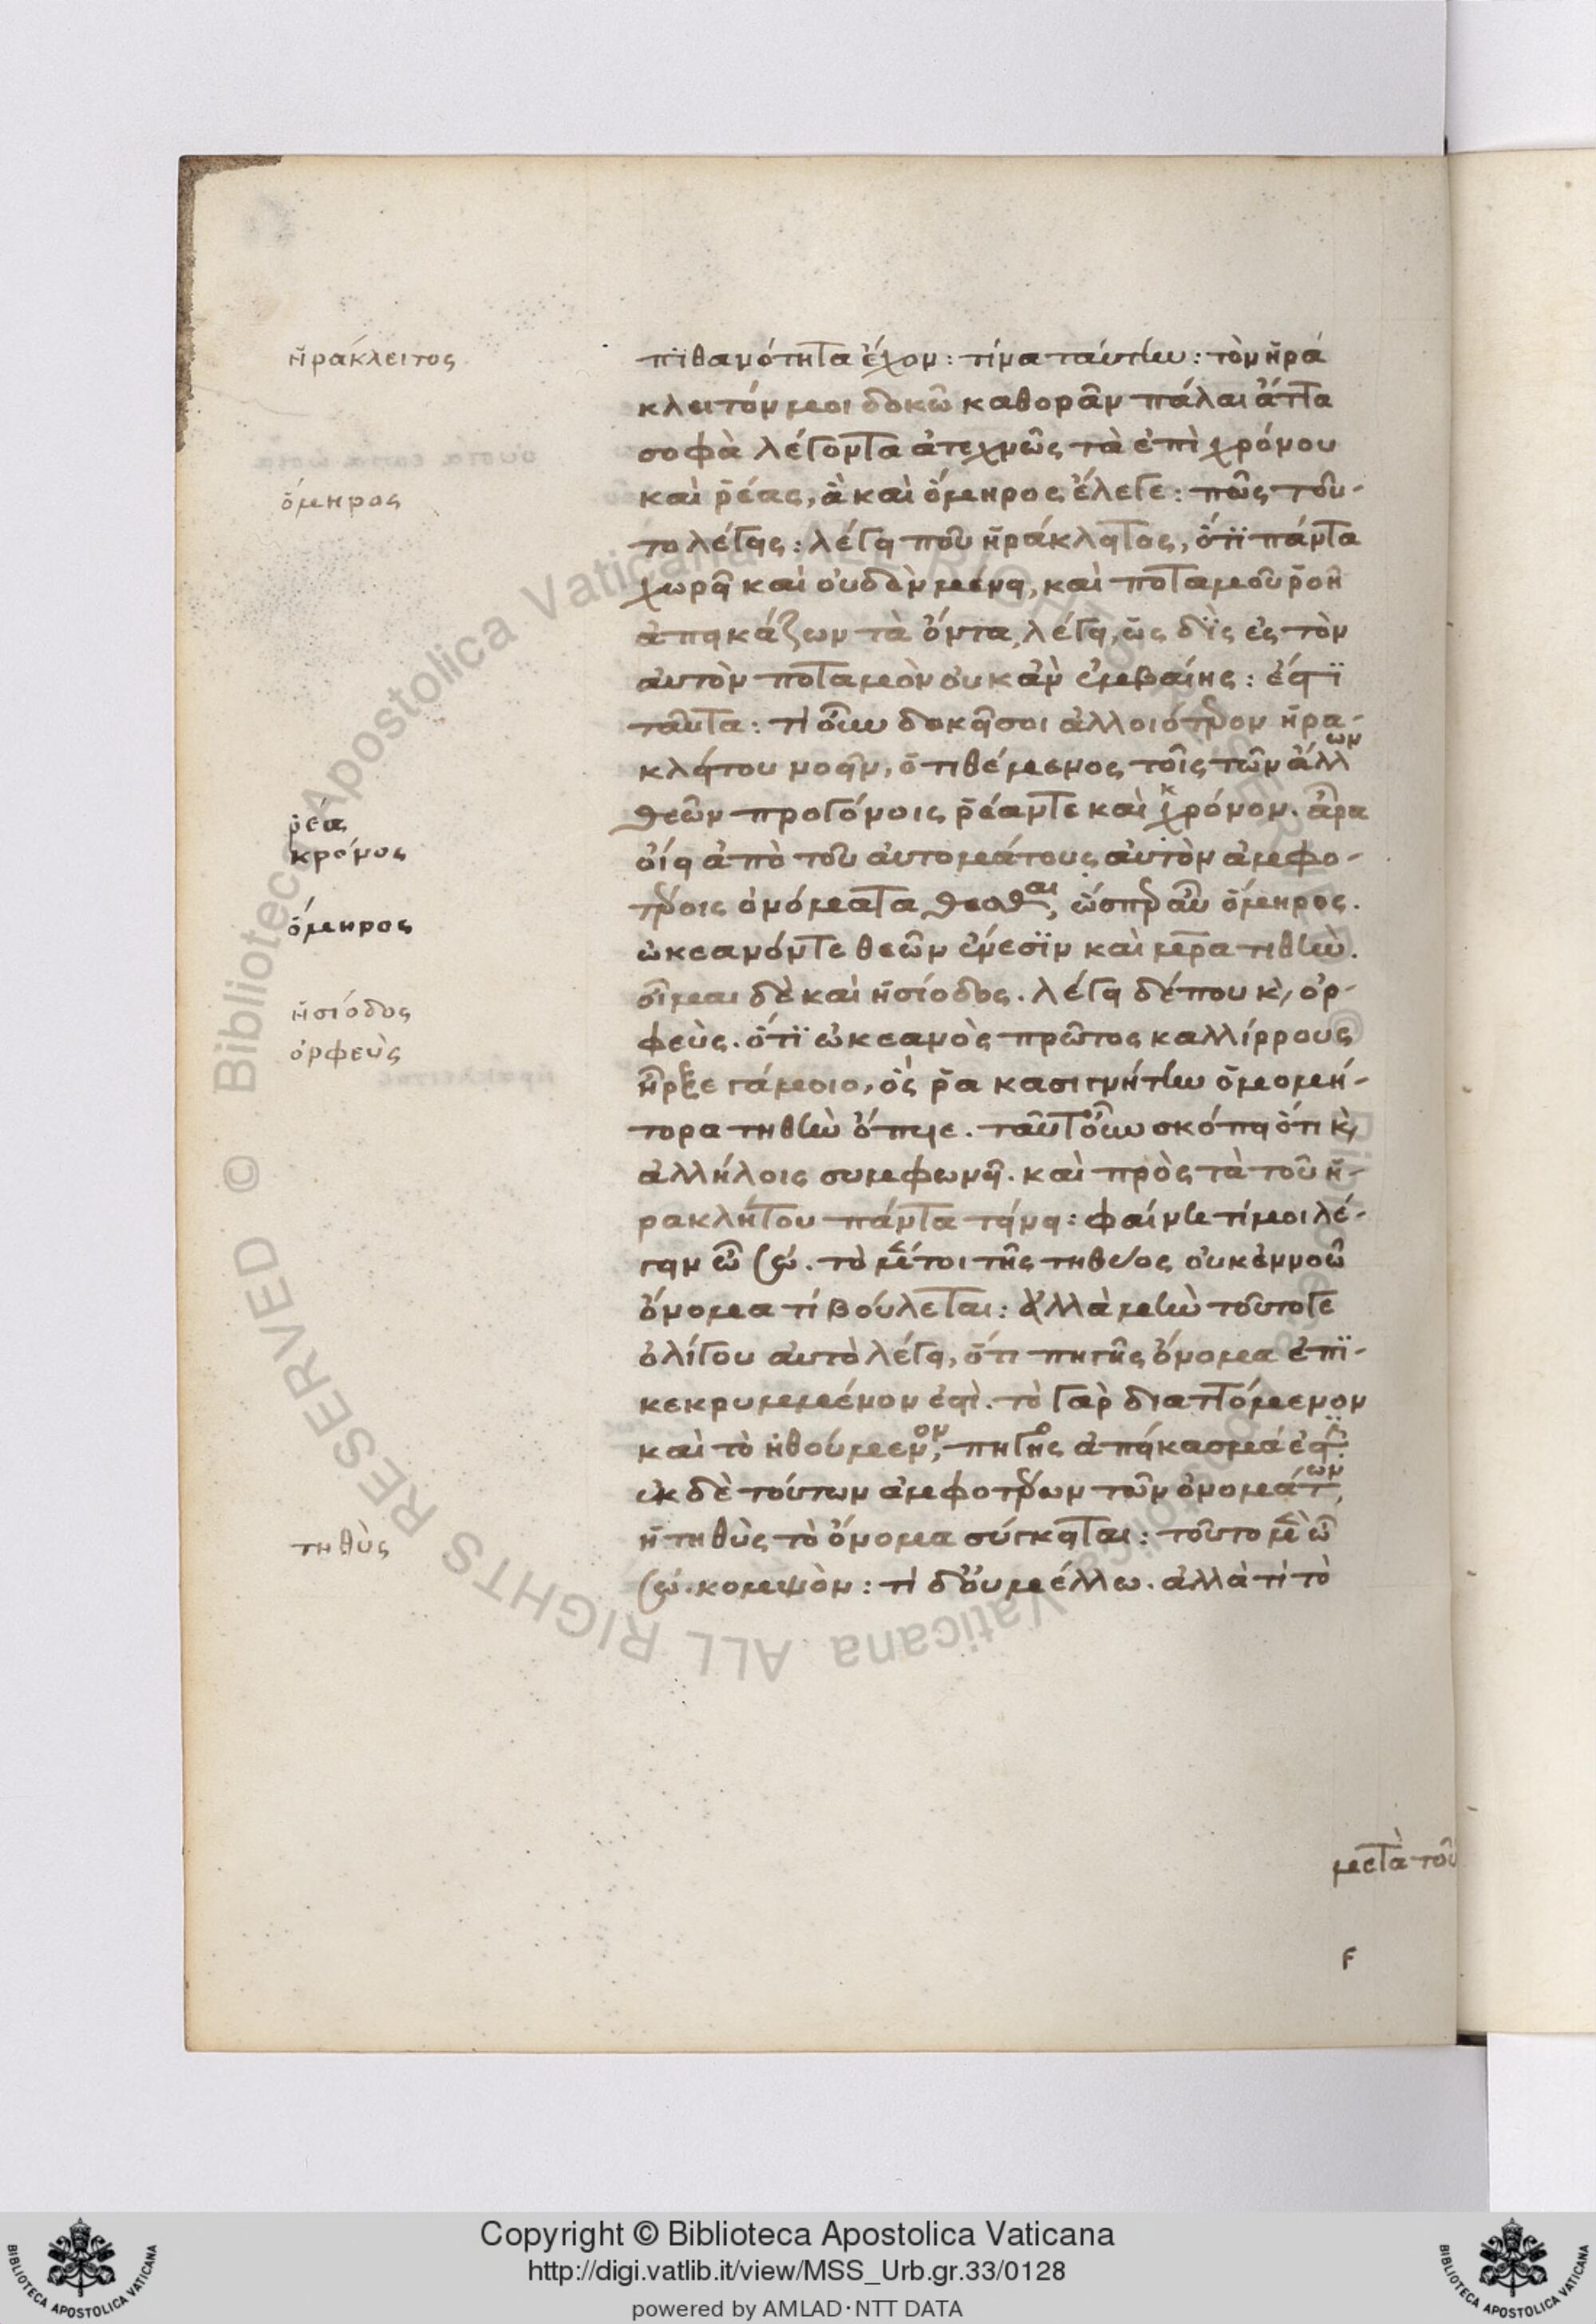 ἡράκλειτος
ὅμηρος
ῥέα
κρόνος
ὅμηρος
ἡσίοδος
ὀρφεὺς
τηθὺς
πϊθανότητα ἔχον : τίνα ταύτην : τὸν ἡρά
κλειτόν μοι δοκῶ καθορᾶν πάλαι ἄττα
σοφὰ λέγοντα ἀτεχνῶς τὰ ἐπὶ χρόνου
καὶ ῥέας, ἃ καὶ ὅμηρος ἔλεγε : πῶς τοῦ-
το λέγεις : λέγει που ἡράκλειτος, ὅτϊ πάντα
χωρεῖ καὶ οὐδὲν μένει, καὶ ποταμοῦ ῥοῆ
ἀπεικάζων τὰ ὄντα, λέγει, ὡς δϊς ἐς τὸν
αὐτὸν ποταμὸν οὐκ ἂν ἐμβαίης : ἔστϊ
ταῦτα : τί οὖν δοκεῖ σοι ἀλλοιότερον ἡρα-
κλείτου νοεῖν, ὁ τιθέμενος τοῖς τῶν ἄλλων
θεῶν προγόνοις ῥέαν τε καὶ χρόνον. ἆρα
οἴει ἀπὸ τοῦ αὐτομάτους αὐτὸν ἀμφο-
τέροις ὀνόματα θέσθαι, ὥσπερ αὖ ὅμηρος.
ὠκεανόν τε θεῶν γένεσϊν καὶ μητέρα τιθὺν.
οἶμαι δὲ καὶ ἡσίοδος. λέγει δέ που κ, ὀρ-
φεὺς. ὅτϊ ὠκεανὸς πρῶτος καλλίρρους
ἦρξε γάμοιο, ὅς ῥα κασιγνήτην ὁμομή-
τορα τηθὺν ὄπυιε. ταῦτ οὖν σκόπει ὅτι κ,
ἀλλήλοις συμφωνεῖ. καὶ πρὸς τὰ τοῦ ἡ-
ρακλήτου πάντα τείνει : φαίνει τί μοι λέ-
γειν ὦ σώ. τὸ μέντοι τῆς τηθύος οὐκ ἐννοῶ
ὄνομα τί βούλεται : ἀλλὰ μὴν τοῦτό γε
ὀλίγου αὐτὸ λέγει, ὅτι πηγῆς ὄνομα ἐπϊ-
κεκρυμμένον ἐστὶ. τὸ γὰρ διαττόμενον
καὶ τὸ ἠθούμενον, πηγῆς ἀπείκασμά ἐστϊ.
ἐκ δὲ τούτων ἀμφοτέρων τῶν ὀνομάτων,
ἡ τηθὺς τὸ ὄνομα σύγκειται : τοῦτο μὲν ὦ
σώ. κομψὸν : τί δ οὐ μέλλω. ἀλλὰ τί τὸ
μετὰ τοῦ
F
Copyright © Biblioteca Apostolica Vaticana
http://digi.vatlib.it/view/MSS_Urb.gr.33/0128
powered by AMLAD·NTT DATA